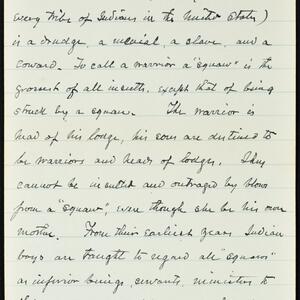 every tribe of Indians in the United States)
is a drudge, a menial, a slave, and a
coward. To call a warrior a "squaw" is the
grossest of all insults, except that of being
struck by a squaw. The warrior is
head of his lodge, his sons are destined to
be warriors and heads of lodges. They
cannot be insulted and outraged by blows
from a "squaw", even though she be his own
mother. From their earliest years Indian
boys are taught to regard all "squaws"
as inferior beings, servants, ministers to